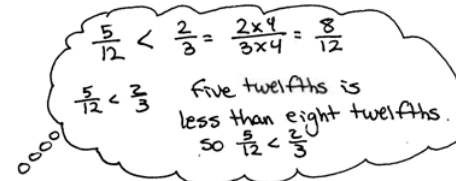 5/12 < 2/3 = 2x4/3x4 = 8/12
5/12 < 2/3 Five twelfths is
less than eight twelfths.
so 5/12 < 2/3